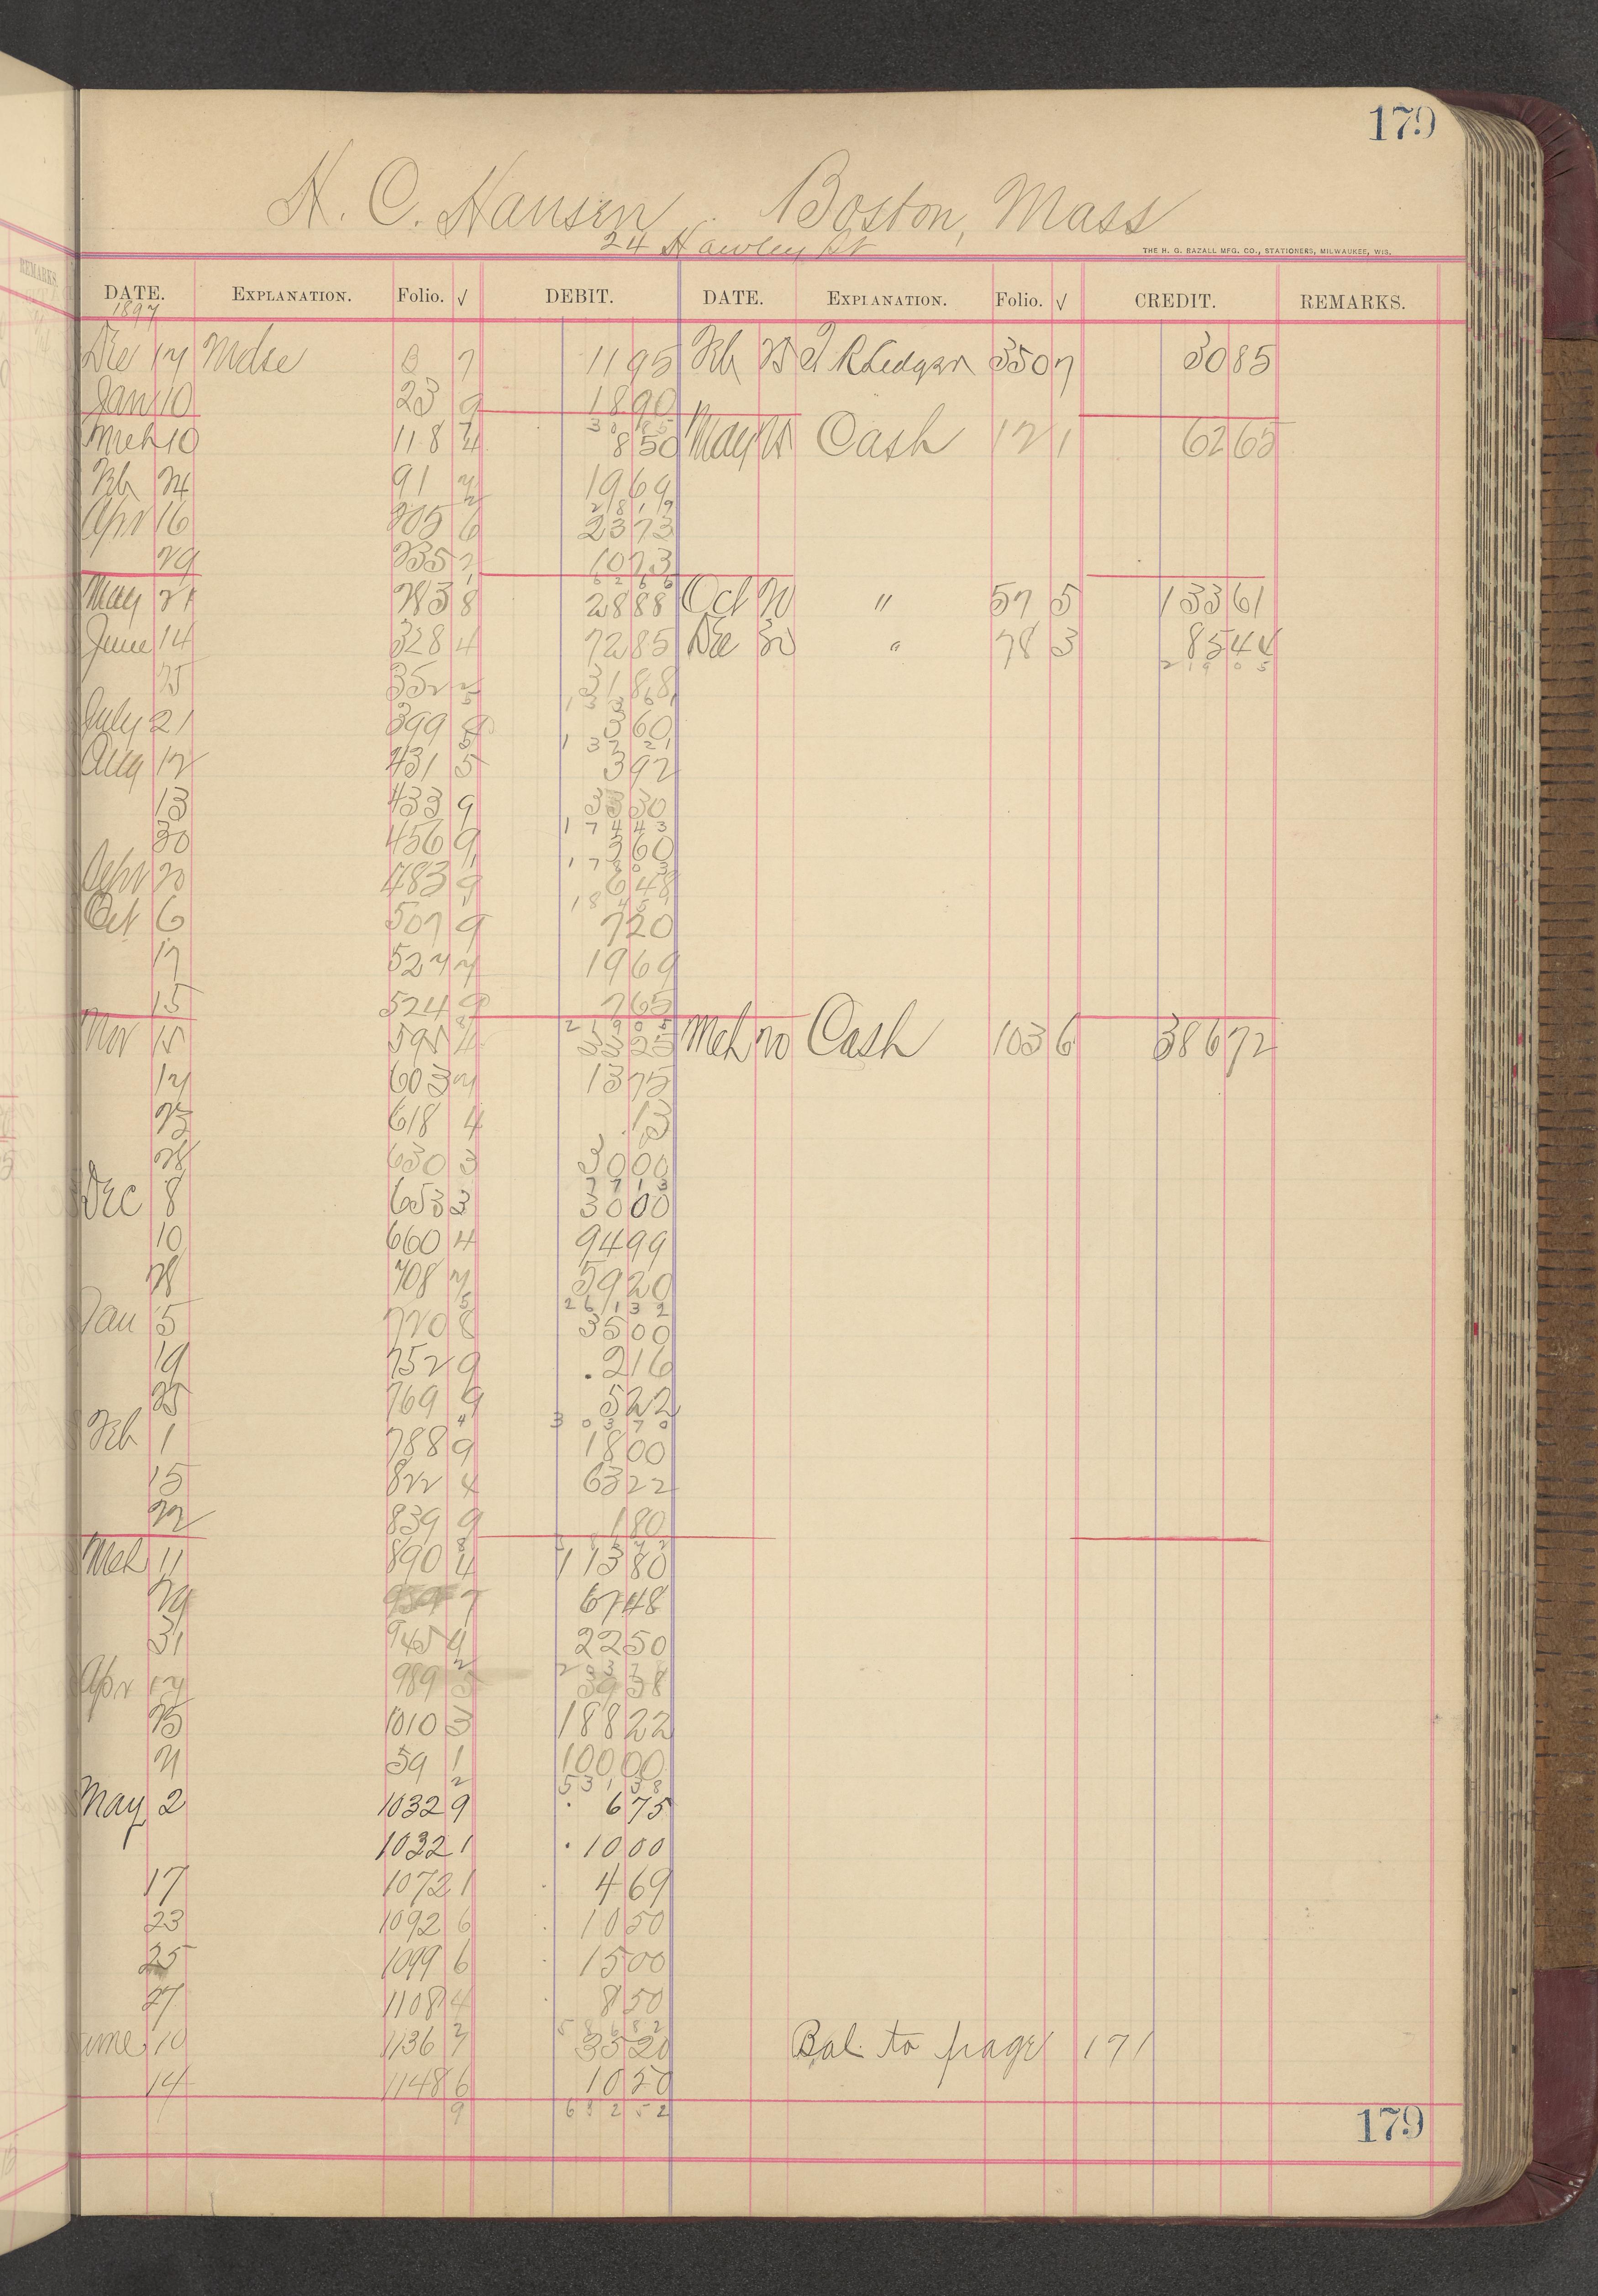 179
H. C. Hansen. Boston, Mass
24 Hawley St
THE H. G. RAZALL MFG. CO., STATIONERS, MILWAUKEE, WIS.
DATE. EXPLANATION. Folio. √ DEBIT. DATE. EXPLANATION. Folio. √ CREDIT. REMARKS.
1897
Dec 17 Mdse 8 7 11 95 Feb 25 Ledger 350 7 30 85
Jan 10 23 9 18 90
30 85
Mch 10 118 4 8 50 May 25 Cash 12 1 62 65
Feb 24 91 19 69
28 19
Apr 16 205 6 23 73
29 235 10 73
62 66
May 21 283 8 28 88 Oct 20 " 57 5 133 61
June 14 328 4 72 85 Dec 30 " 78 3 85 44
219 05
25 352 31 88
133 61
July 21 399 3 60
137 21
Aug 12 431 5 3 92
13 433 9 33 30
174 43
30 456 9 3 60
178 03
Sept 20 483 9 6 48
184 51
Oct 6 507 9 7 20
17 527 7 19 69
15 524 9 7 65
219 05
Nov 15 595 4 33 25 Mch 20 Cash 103 6 386 72
17 603 7 13 75
23 618 4 .13
28 630 3 30 00
77 13
Dec 8 653 3 30 00
10 660 4 94 99
28 708 7 59 20
261 32
Jan 5 720 8 35 00
19 752 9 . 2 16
25 769 9 5 22
303 70
Feb 1 788 9 18 00
15 822 4 63 22
22 839 9 1 80
Mch 11 890 4 113 80
29 7 67 48
31 945 9 22 50
Apr 989 39 38
25 1010 3 188 22
21 59 1 100 00
531 38
May 2 1032 9 . 6 75
1032 1 . 10 00
17 1072 1 4 69
23 1092 6 10 50
25 1099 6 15 00
27 1108 4 8 50
586 82
June 10 1136 7 35 20 Bal. to page 171
14 1148 6 10 50
9 632 52
179